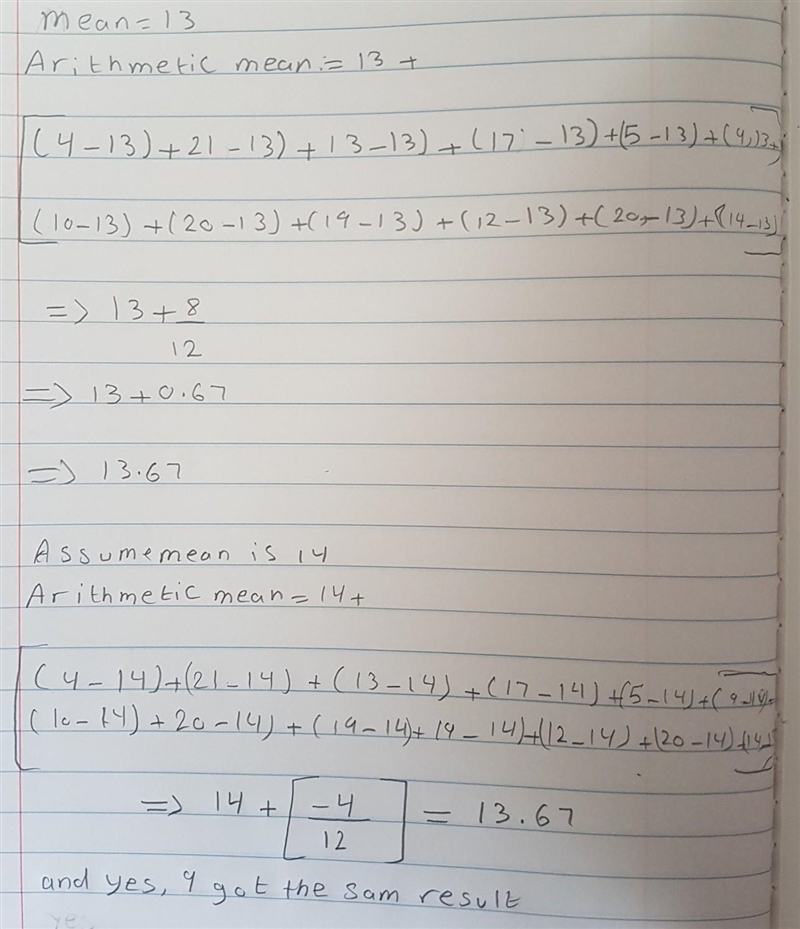 mean = 13
Arithmetic mean := 13 +
(4-13) + 21-13) + 13-13) + (17-13) + (5-13) + (9,13+
(10-13) + (20-13) + (19-13) + (12-13) + (20-13) + (14-13)
=> 13 + 8
12
=> 13 + 0.67
=> 13.67
Assumemean is 14
Arithmetic mean = 14 +
(4-14) + (21-14) + (13-14) + (17-14) + (5-14) + (9-14)
(10-14) + 20-14) + (19-14) + 19-14) + (12-14) + (20-14) + (14-
=> 14 + [-4
12] = 13.67
and yes, 9 got the sam result